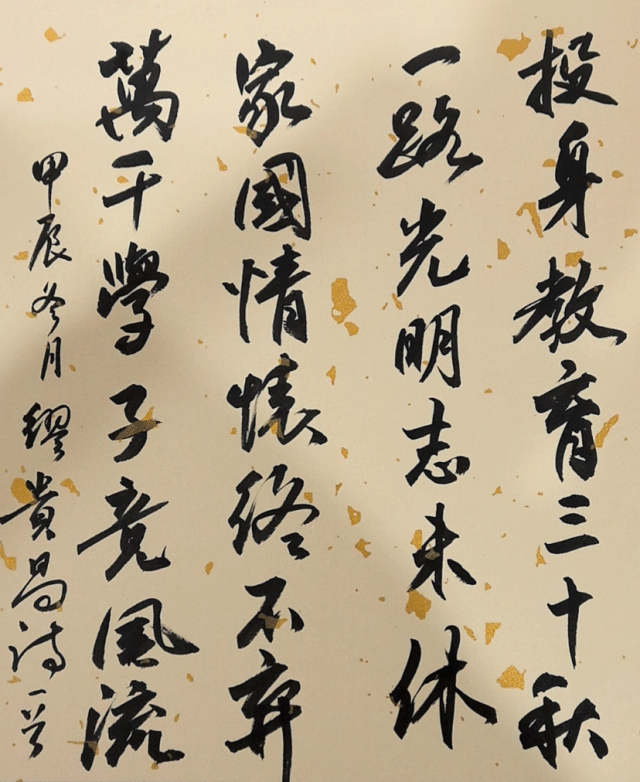 投身教育三十秋
一路光明志未休
家國情懷終不棄
萬千學子竟風流
甲辰冬月繆貴昌詩一首